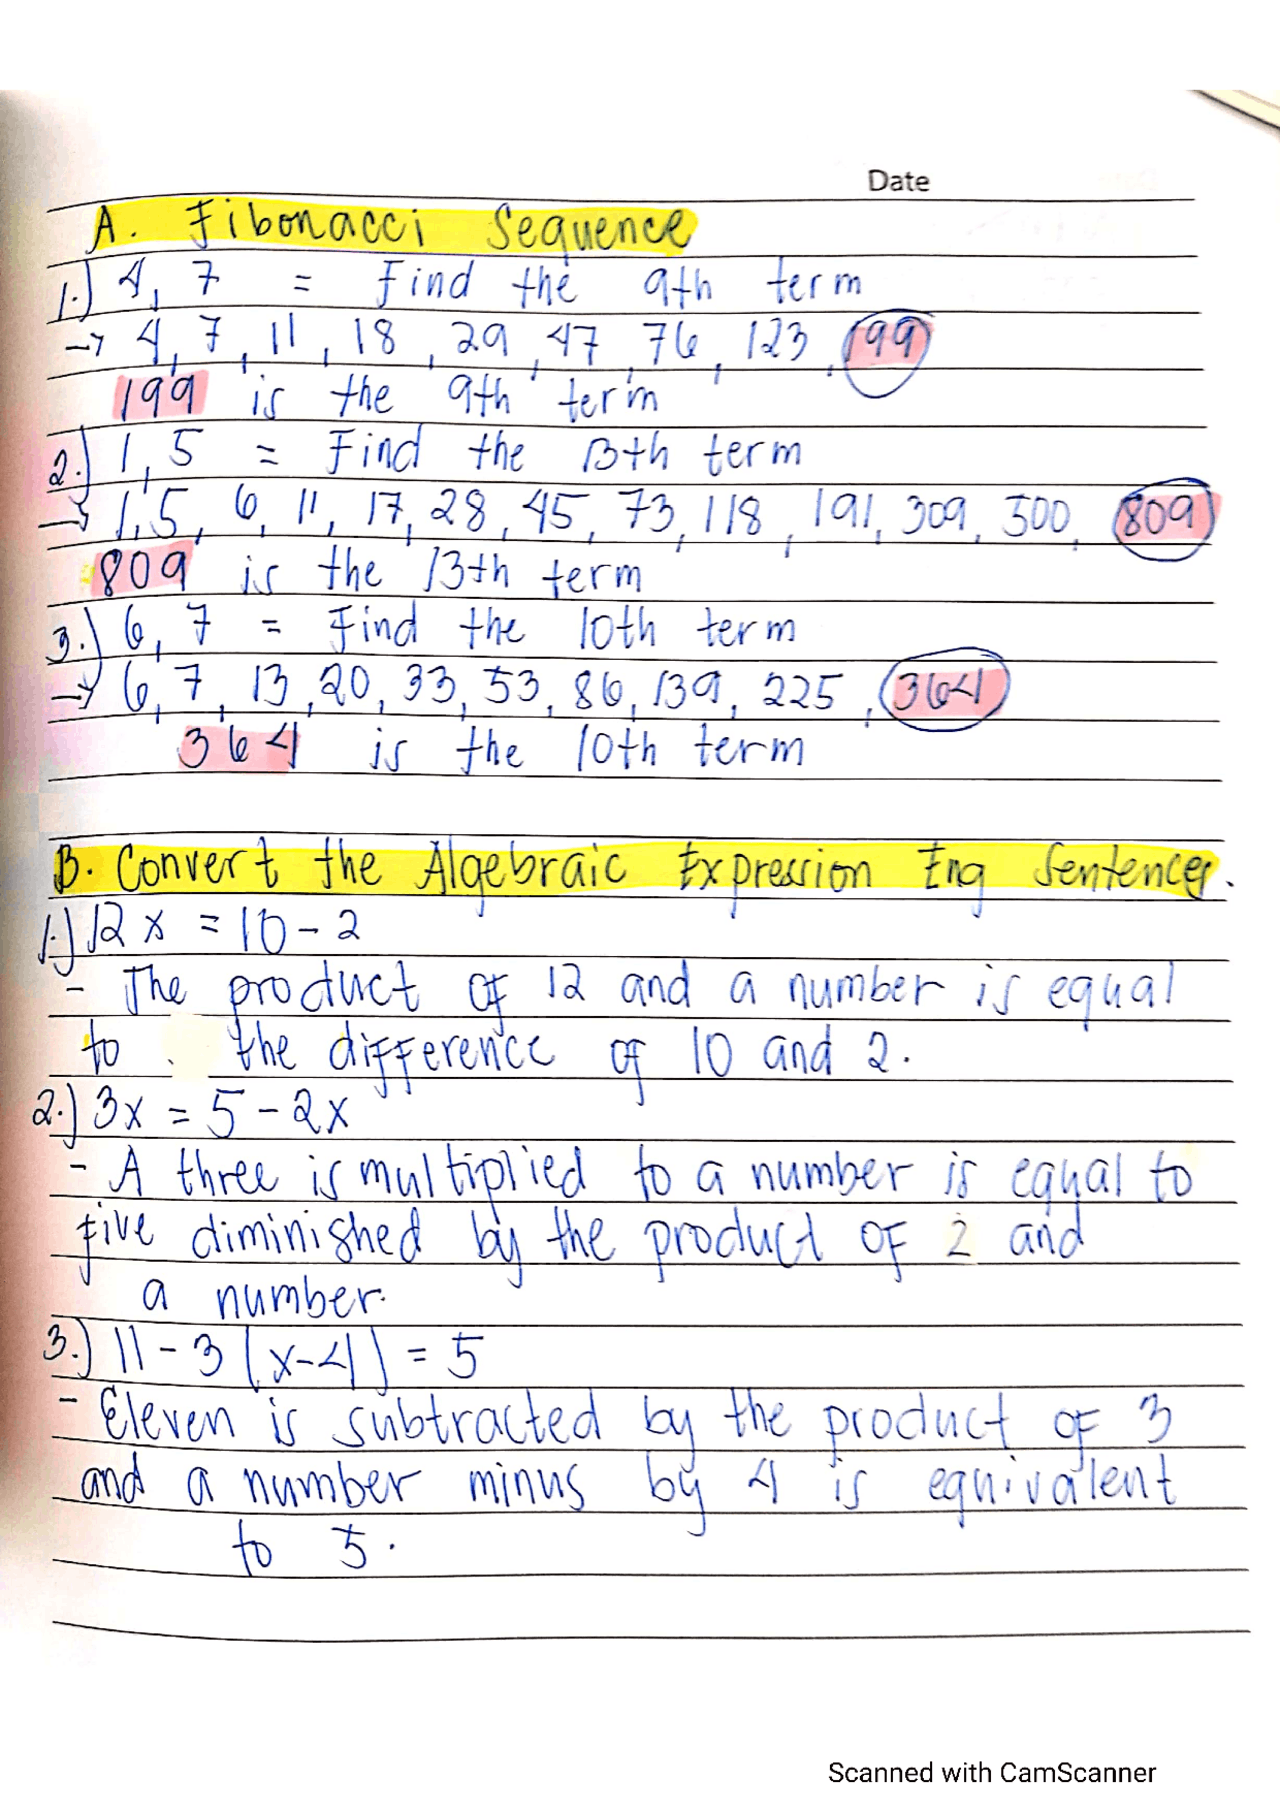 Date
A. Fibonacci Sequence
1.) 4, 7 = Find the 9th term
→ 4, 7, 11, 18, 29, 47, 76, 123, 199
199 is the 9th term
2.) 1, 5 = Find the 13th term
→ 1, 5, 6, 11, 17, 28, 45, 73, 118, 191, 309, 500, 809
809 is the 13th term
3.) 6, 7 = Find the 10th term
→ 6, 7, 13, 20, 33, 53, 86, 139, 225, 364
364 is the 10th term
B. Convert the Algebraic Expression Eng Sentences.
1.) 12x = 10 - 2
- The product of 12 and a number is equal
to the difference of 10 and 2.
2.) 3x = 5 - 2x
- A three is multiplied to a number is equal to
five diminished by the product of 2 and
a number.
3.) 11 - 3 (x-4) = 5
- Eleven is subtracted by the product of 3
and a number minus by 4 is equivalent
to 5.
Scanned with CamScanner